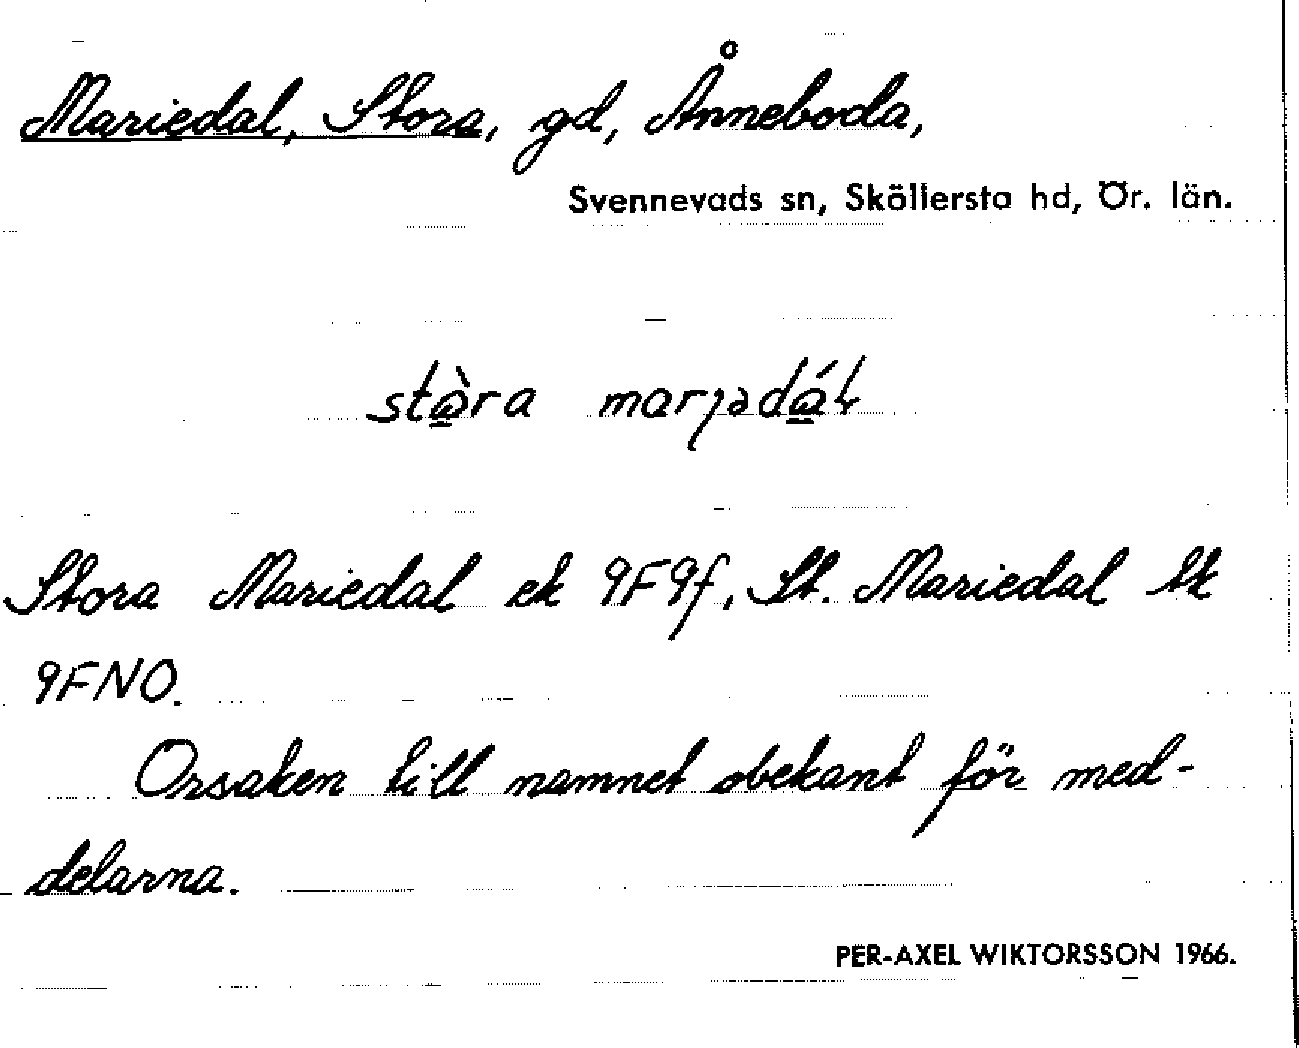 Mariedal, Stora, gd, Ånneboda,
Svennevads sn, Sköllersta hd, Ör. län.
stà̲ra marȷədá̲ɫ
Stora Mariedal ek 9F9f, St. Mariedal tk
9FNO.
Orsaken till namnet obekant för med-
delarna.
PER-AXEL WIKTORSSON 1966.